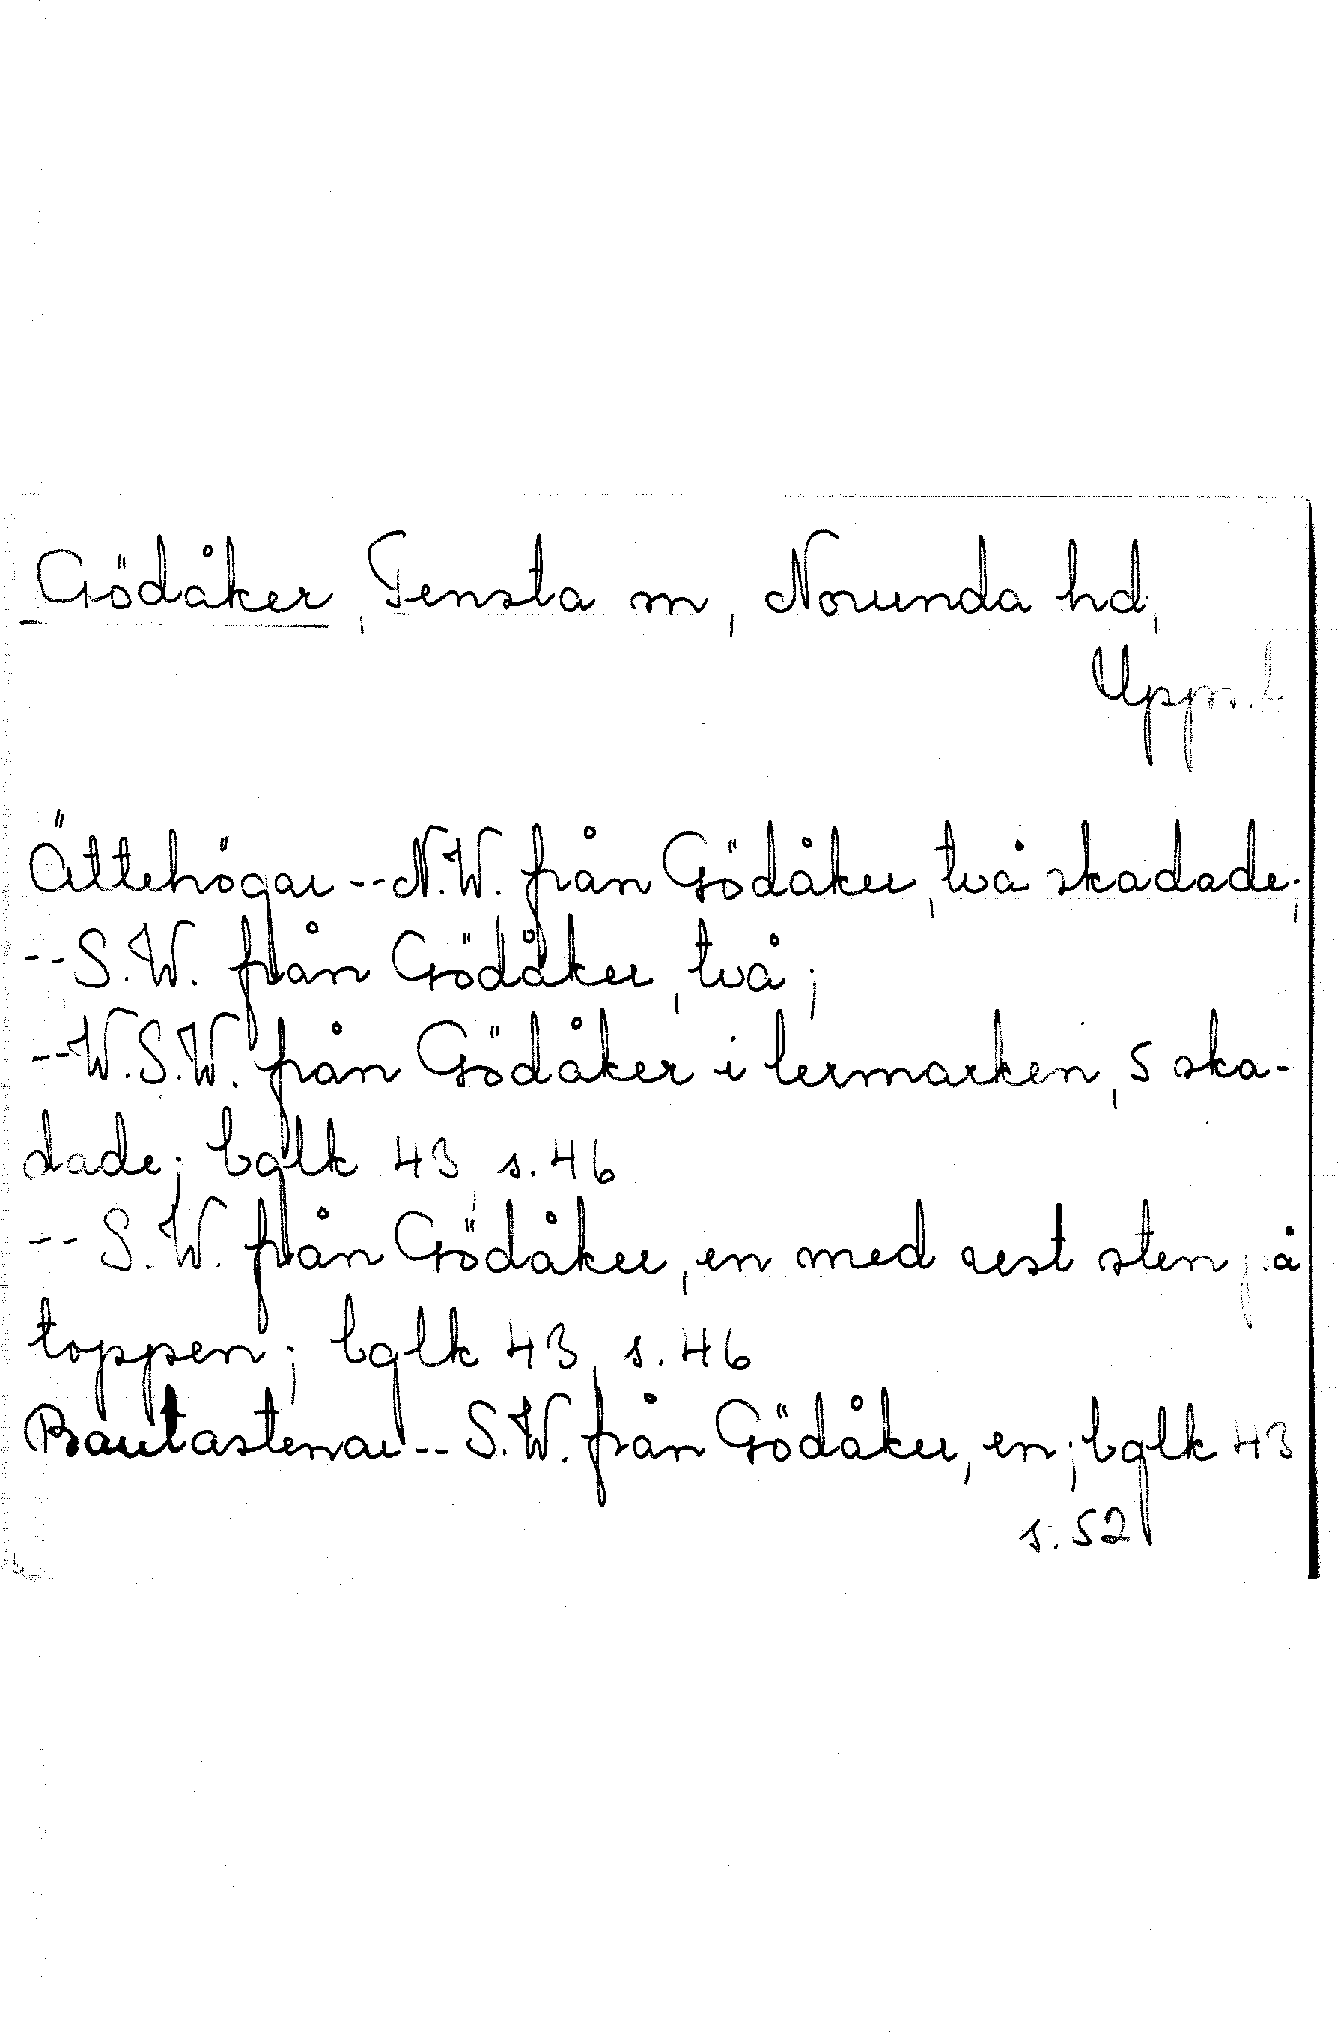 Gödåker, Tensta sn, Norunda hd,
Upps. l
Ättehögar -- N.W. från Gödåker, två skadade;
-- S.W. från Gödåker, två;
-- W.S.W. från Gödåker i lermarken, 5 ska-
dade; bglk 43 s. 46
-- S.W. från Gödåker, en med rest sten på
toppen; bglk 43, s. 46
Bautastenar -- S.W. från Gödåker, en; bglk 43
s. 52